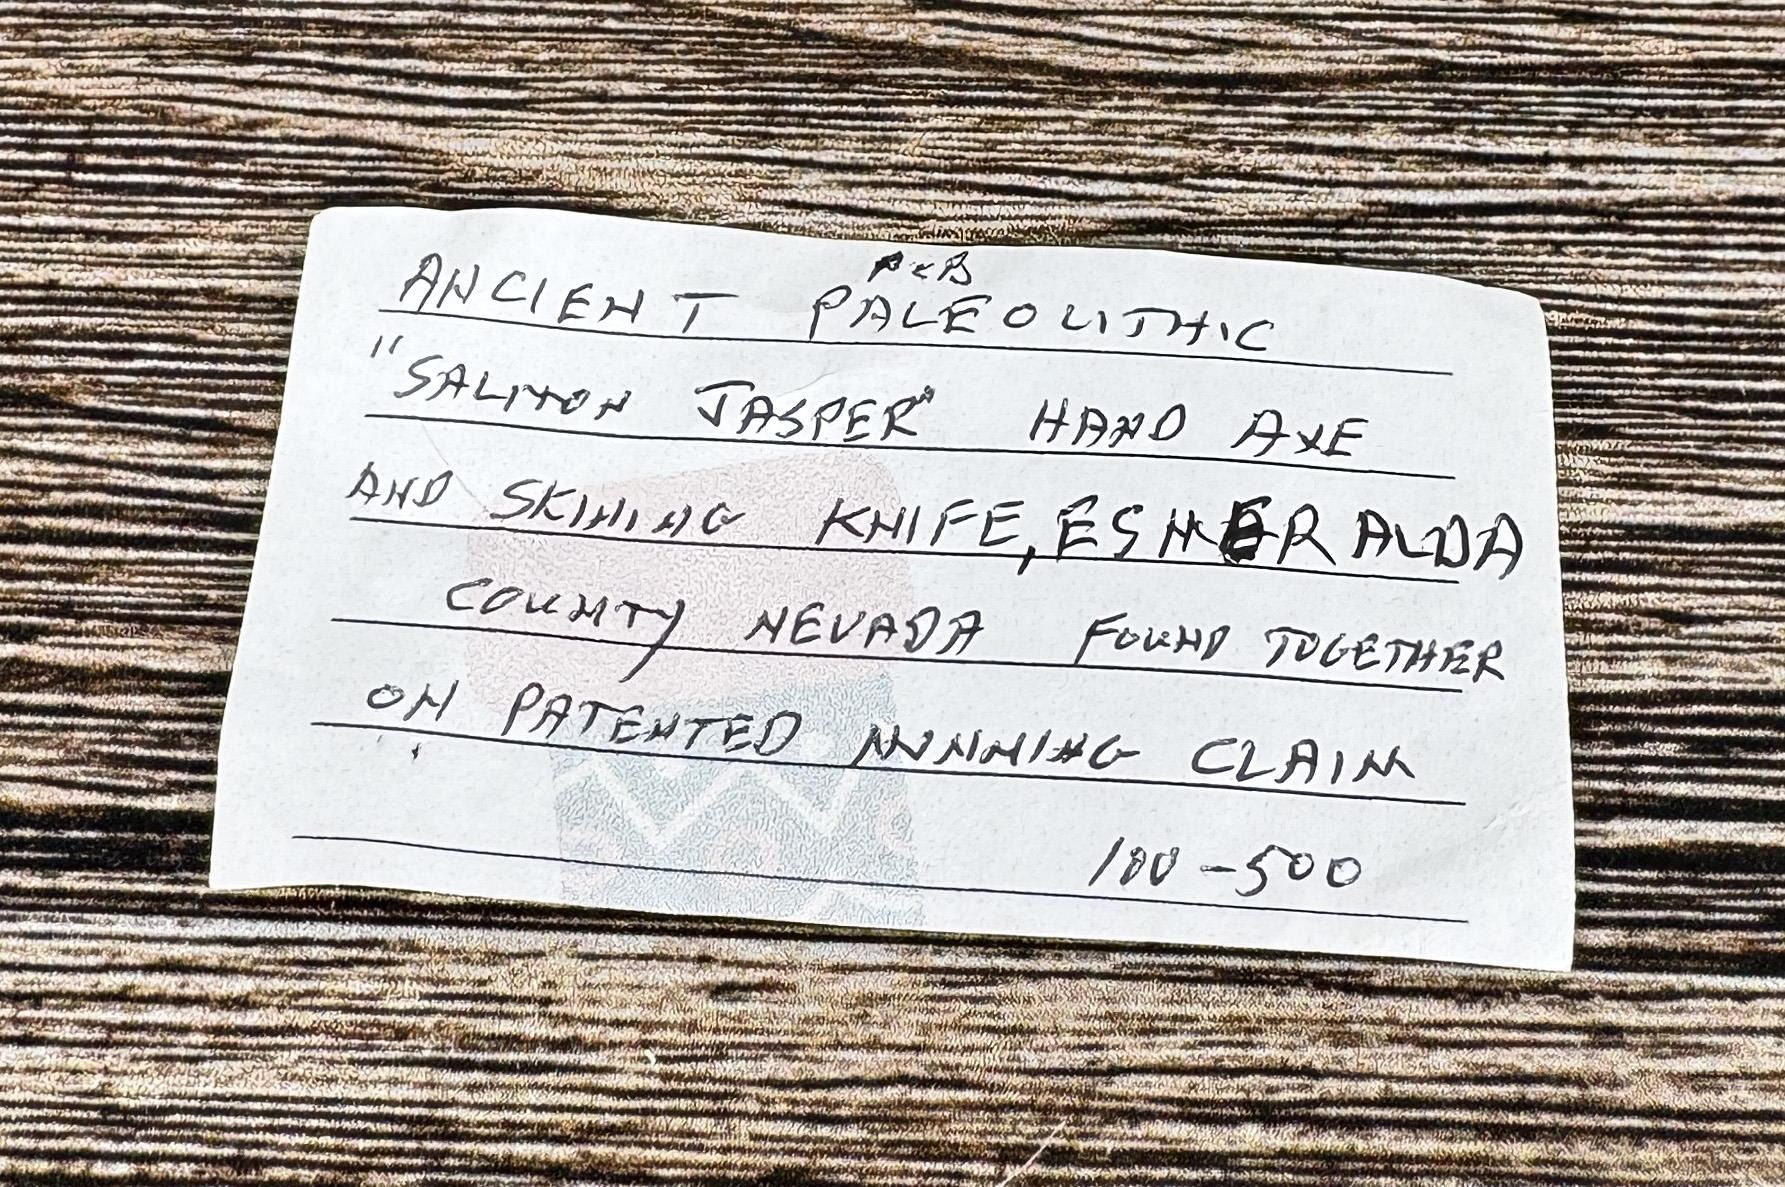 A & B
ANCIENT PALEOLITHIC
"SALMON JASPER" HAND AXE
AND SKINING KNIFE, ESMERALDA
COUNTY NEVADA FOUND TOGETHER
ON PATENTED MINNING CLAIM
100 - 500